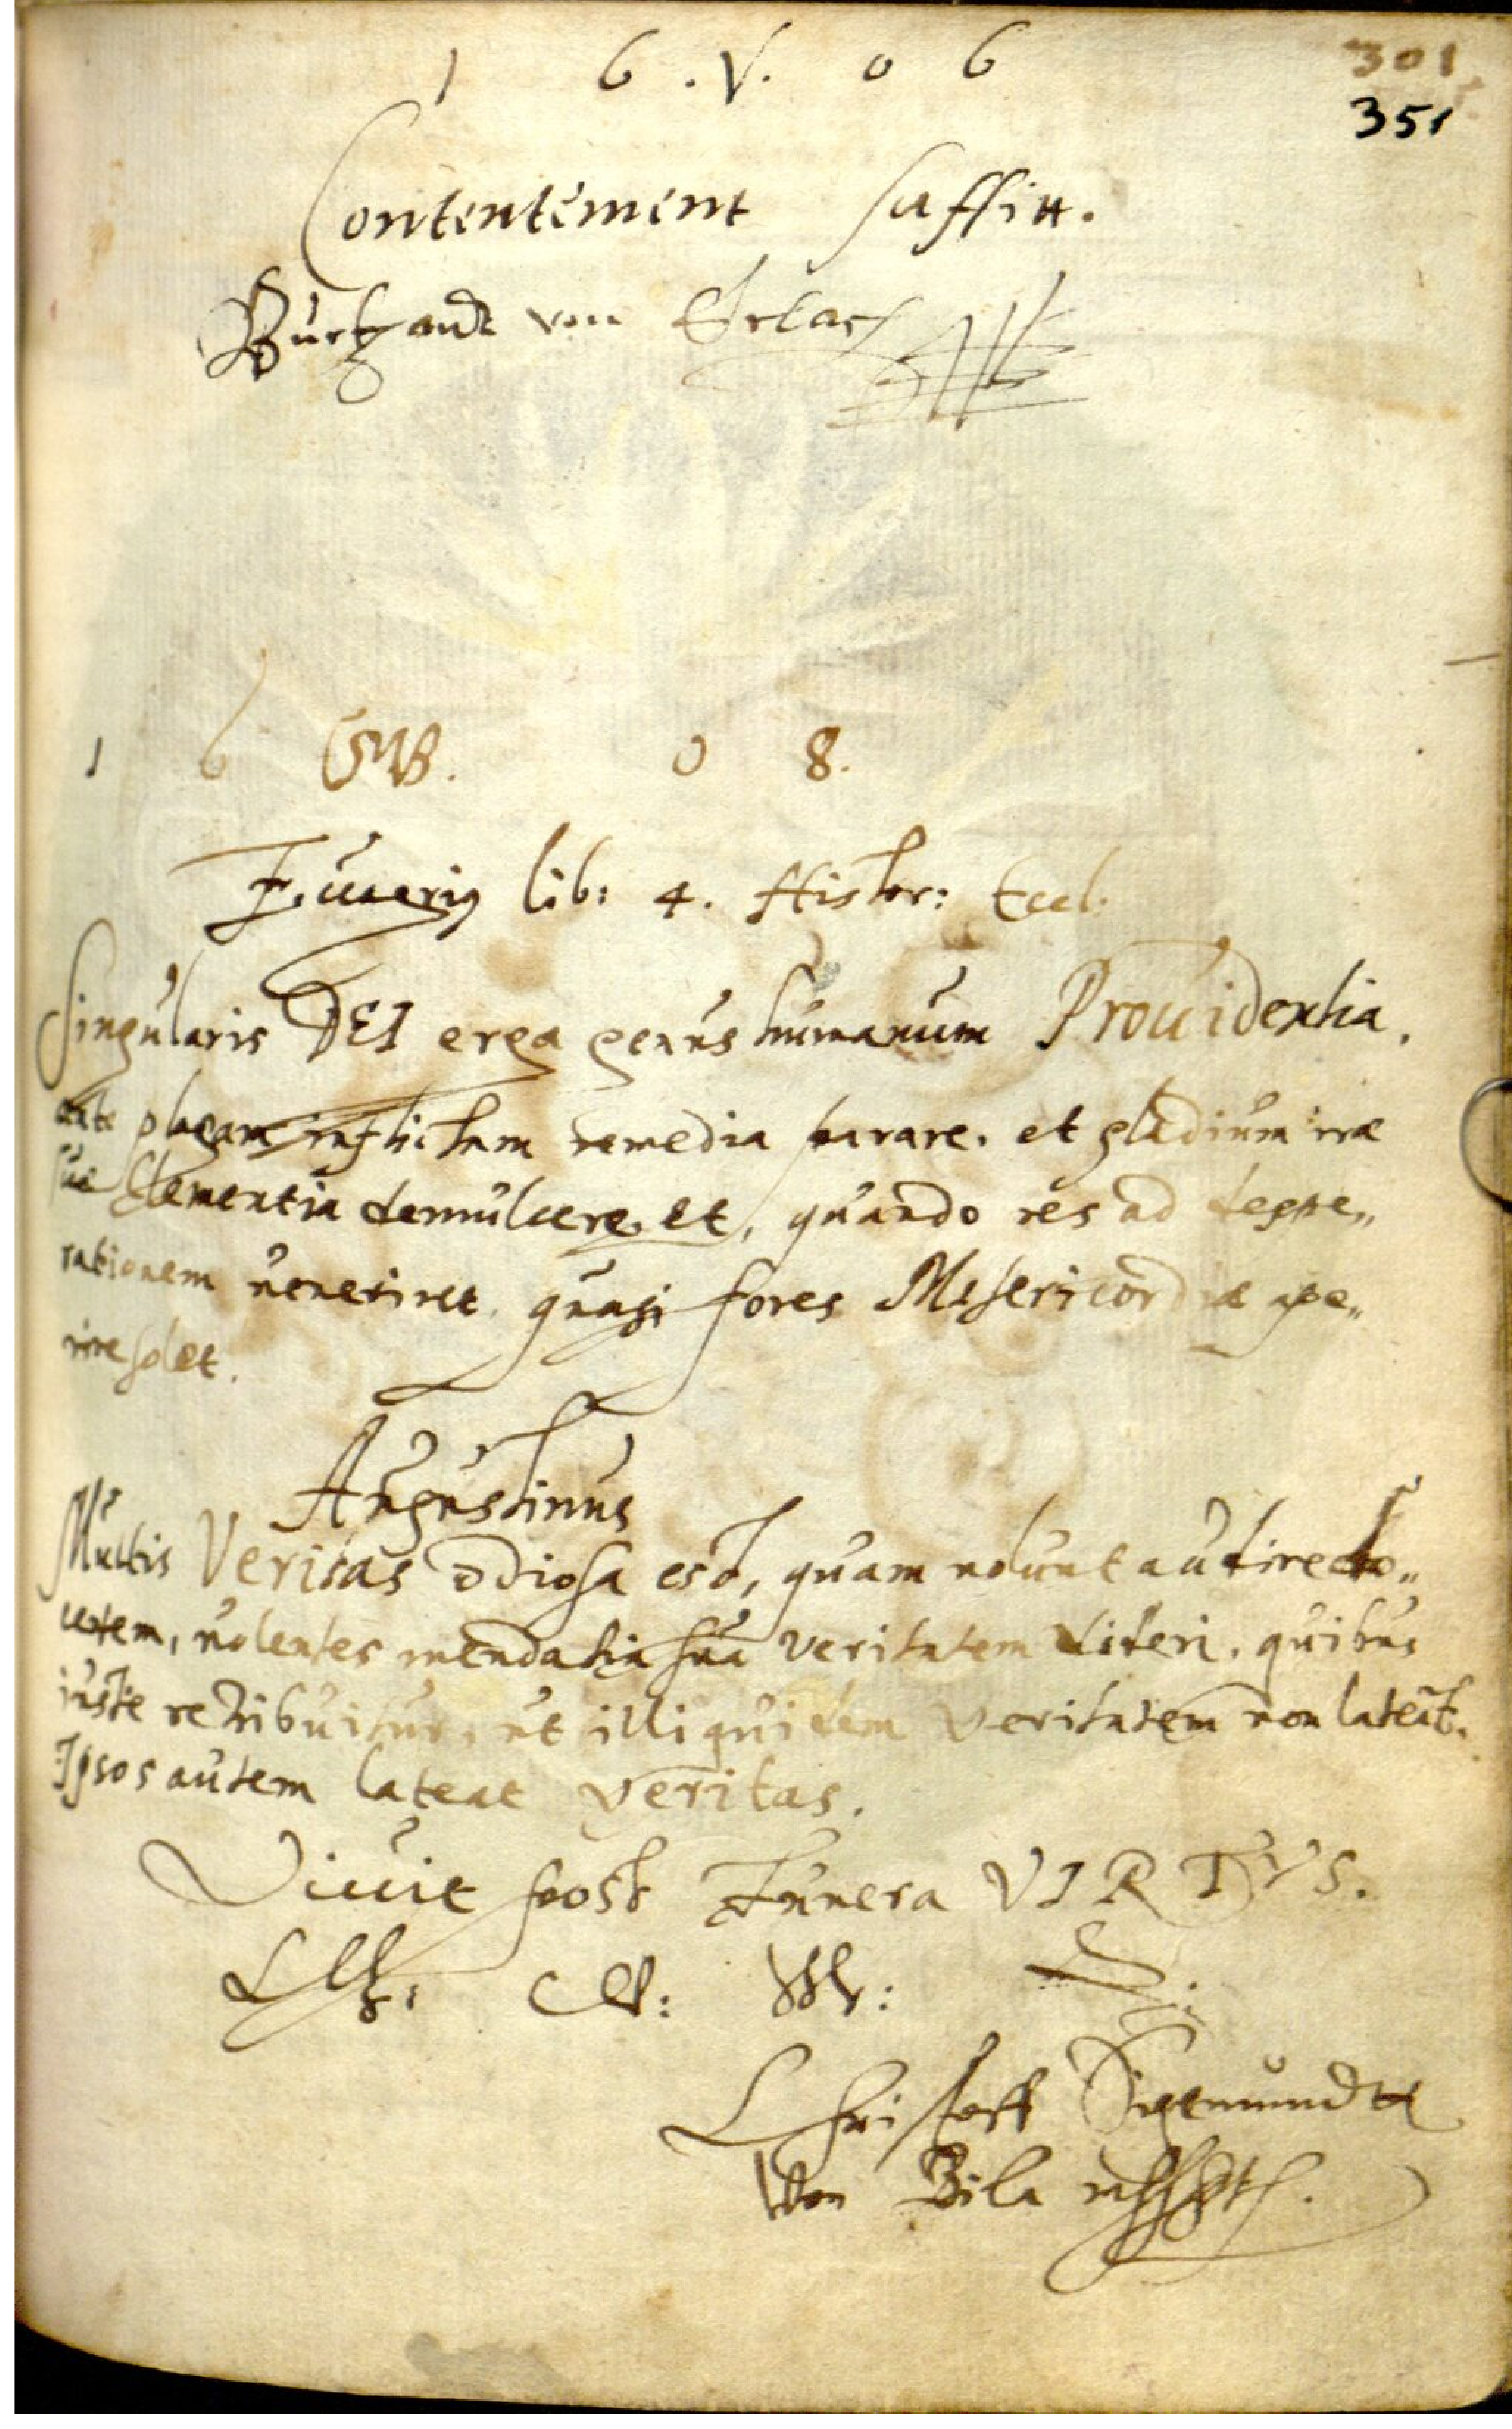 1 6 . V. 0 6
301
351
Contentement suffitt.
Burkhardt von Erlach
1 6 GWB. 0 8.
lib: 4. Histor: Eccl.
Singularis DEI erga genus humanum Prouidentia,
ante plagam inflictam remedia parare. et gladium irae
sua Clementia demulcere. et, quando res ad despe„
rationem uenerint, quasi fores Misericordiae ape„
rire solet.
Augustinus
Multis Veritas odiosa est, quam nolunt audire do„
centem, nolentes mendatia sua veritatem videri. quibus
iuste retribuitur, ut illi quidem veritatem non lateat.
Ipsos autem lateat veritas.
Viuit post Funera VIRTVS.
Christoff Sigemundt
Von Bila